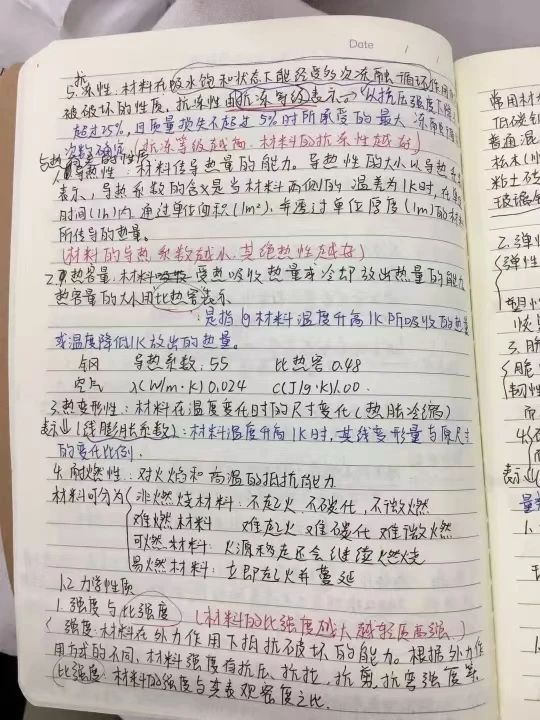 Date / /
抗
5.冻性：材料在吸水饱和状态下能经受多次冻融循环作用
被破坏的性质，抗冻性由抗冻等级表示→以抗压强度下降
超过25%，且质量损失不超过5%时所承受的最大冻融
次数确定（抗冻等级越高，材料的抗冻性越好）
与热有关的性质
1.导热性：材料传导热量的能力。导热性的大小以导热系
表示，导热系数的含义是当材料两侧的温差为1K时，在单
时间(1h)内通过单位面积(1m²)，并透过单位厚度(1m)的材
所传导的热量。
（材料的导热系数越小，其绝热性越好）
2.热容量：材料受热吸收热量或冷却放出热量的能力
热容量的大小用比热容表示
：是指1g材料温度升高1K所吸收的热量
或温度降低1K放出的热量。
钢 导热系数：55 比热容 0.48
空气 λ(W/m·K) 0.024 C(J/g·K) 1.00.
3.热变形性：材料在温度变化时的尺寸变化（热胀冷缩）
表示（线膨胀系数）：材料温度升高1K时，其线变形量与原尺寸
的变化比例.
4.耐燃性：对火焰和高温的抵抗能力
材料可分为 非燃烧材料：不起火 不碳化，不微燃
难燃材料 难起火 难碳化 难微燃
可燃材料：火源移走还会继续燃烧
易燃材料：立即起火并蔓延
1.2 力学性质
1.强度与比强度（材料的比强度越大越轻质高强、）
强度：材料在外力作用下抵抗破坏的能力。根据外力作
用方式的不同，材料强度有抗压、抗拉、抗剪、抗弯强度等.
比强度：材料的强度与其表观密度之比.
常用材
低碳钢
普通混
松木(
粘土砖
玻璃
2.弹
弹性
塑性
3.脆
脆
韧性
表示